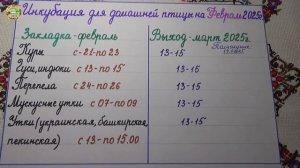 Инкубация для домашней птицы на Февраль 2025г.
Закладка-февраль
Выход-март 2025г.
Куры с-21-по 23
13-15
Гуси, индюки с-13-по 15
13-15
Перепела с-24-по 26
13-15
Мускусные утки с-07-по 09
13-15
Утки (украинская, башкирская,
13-15
пекинская) с-13-по-15.00